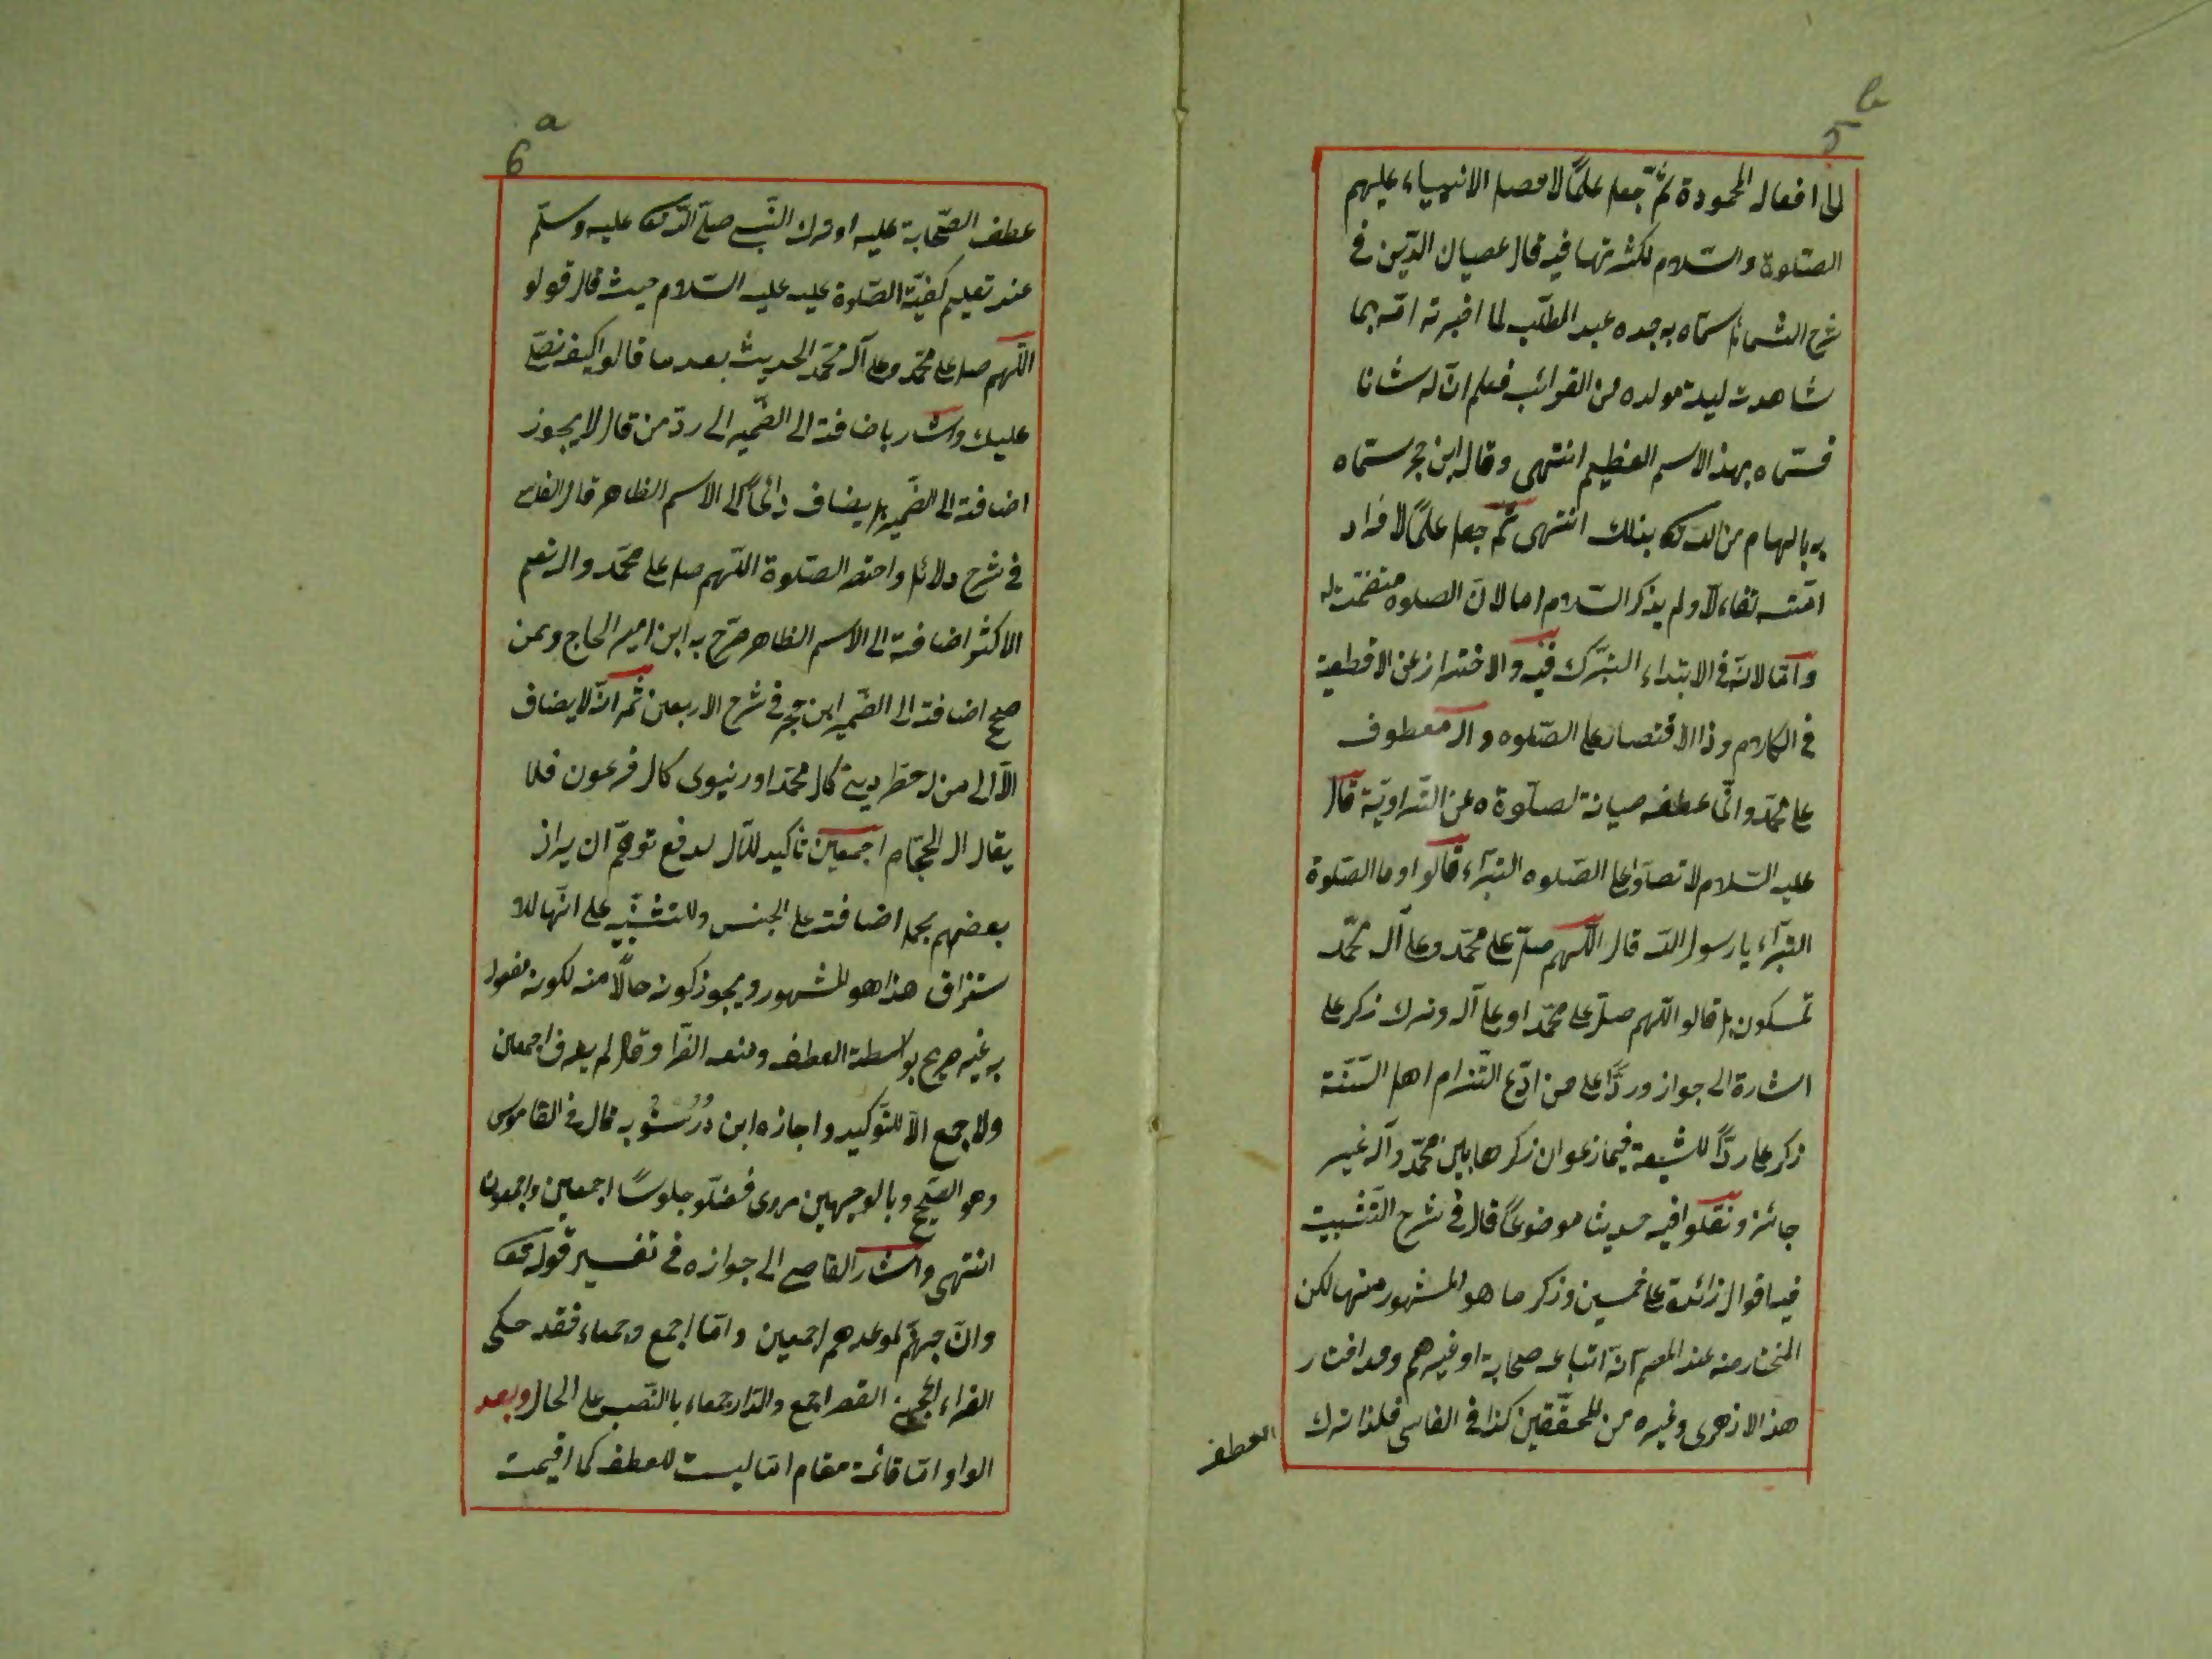 b
5
الى افعاله المحمودة ثمّ جعل علمًا لافضل الانبياء عليهم
الصّلوة والسّلام لكثرتها فيه قال عصيان الدّين فى
شرح الشمائل سمّاه به جده عبد المطّلب لما اخبرته امّه بما
شاهدت ليلة مولده من الغرائب فعلم انّ له شانا
فسمّاه بهذا الاسم العظيم انتهى وقال ابن حجر سمّاه
به بالهام من الله تعالى بذلك انتهى ثمّ جعل علمًا لافراد
امّته تفاءلًا ولم يذكر السّلام اما لانّ الصلوة متضمّنة له
وامّا لانّه فى الابتداء التبرّك فيه والاحتراز عن الاقطعية
فى الكلام وذا الاقتصار على الصّلوه وآله معطوف
على محمّد وانّما عطفه صيانة لصلوة ه عن البتراويّة قال
عليه السّلام لا تصلّوا على الصّلوه البتراء قالوا وما الصّلوة
البتراء يا رسول اللّه قال اللّهم صلّ على محمّد وعلى آل محمّد
تمسكون بل قالو اللّهم صلّ على محمّد او على آله وترك ذكر على
اشارة الى جواز وردًّا على من ادّعى التزام اهل السّنّة
ذكر على ردًّا للشيعة فيما زعموا ان ذكرها بين محمّد وآله غير
جائز ونقلوا فيه حديثا موضوعًا قال فى شرح التّثبيت
فيه اقوال زائدة على خمسين وذكر ما هو المشهور منها لكن
المختار منه عند المصم انّه اتباعه صحابة او غيرهم وقد اختار
هذا الازهرى وغيره من المحقّقين كذا فى الفاسى فلذا ترك
العطف
a
6
عطف الصّحابة عليه او ترك النّبى صلّى اللّه تعالى عليه وسلّم
عند تعليم كيفيّة الصّلوة عليه عليه السّلام حيث قال قولو
اللّهم صل على محمّد وعلى آل محمّد الحديث بعد ما قالوا كيف نصلّى
عليك واشار باضافته الى الضّمير الى ردّ من قال لا يجوز
اضافته الى الضّمير بل يضاف دائمًا الى الاسم الظاهر قال الفاسى
فى شرح دلائل واختصر الصّلوة اللّهم صل على محمّد وآله نعم
الاكثر اضافته الى الاسم الظاهر صرّح به ابن امير الحاج وممن
صحح اضافته الى الضّمير ابن حجر فى شرح الاربعين ثمّ انّه لا يضاف
الّا الى من له خطر دينى كال محمّد او دنيوى كال فرعون فلا
يقال ال الحجّام اجمعين تأكيد للآل لدفع توهّم ان يراد
بعضهم بحمل اضافته على الجنس وللتنبيه على انّها للا
ستغراق هذا هو المشهور ويجوز كونه حالًا منه لكونه مفعول
به غير صريح بواسطة العطف ومنعه الفرّا وقال لم يعرف اجمعين
ولا جمع الّا للتّوكيد واجازه ابن دُرُسْتُويه قال فى القاموس
وهو الصّحيح وبالوجهين مروى فصلّو جلوسًا اجمعين واجمعون
انتهى واشار القاضى الى جوازه فى تفسير قوله تعالى
وانّ جهنّم لموعدهم اجمعين وامّا اجمع وجمعاء فقد حكى
الفراء اعجبنى القصر اجمع والدّار جمعاء بالنّصب على الحال وبعد
الواو امّا قائمة مقام امّا ليست للعطف كما اقيمت